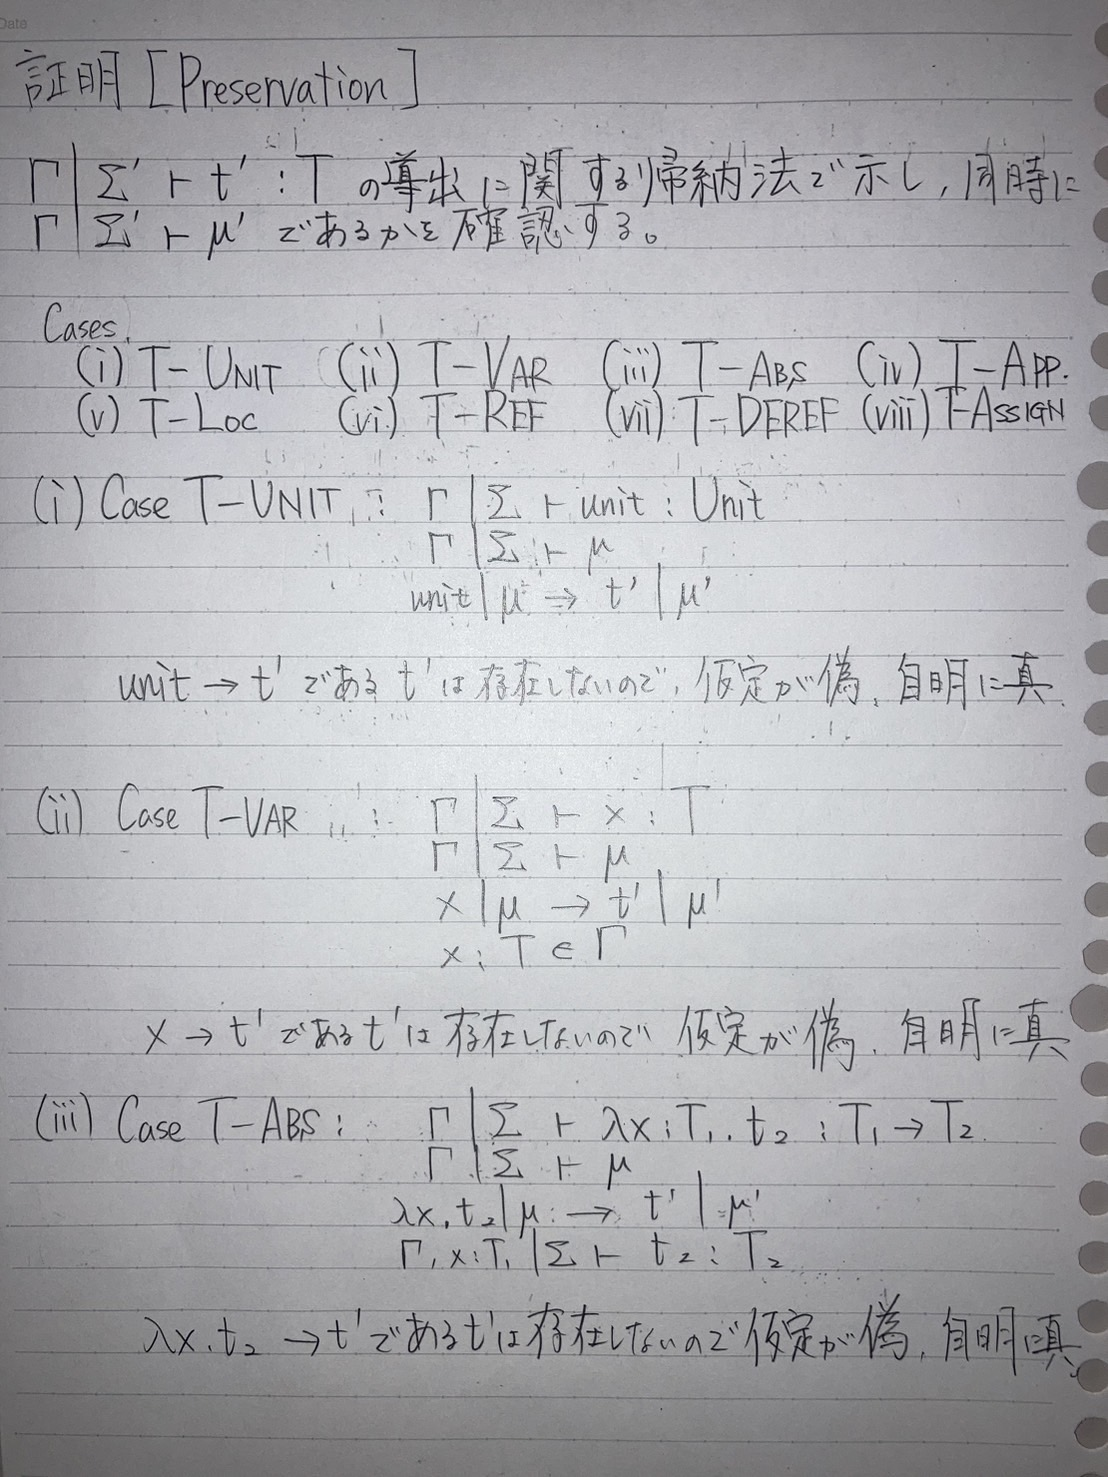 Date
証明 [Preservation]
Γ | Σ' ⊢ t' : T の導出に関する帰納法で示し, 同時に
Γ | Σ' ⊢ μ' であるかを確認する。
Cases.
(i) T-UNIT (ii) T-VAR (iii) T-ABS (iv) T-APP.
(v) T-LOC (vi) T-REF (vii) T-DEREF (viii) T-ASSIGN
(i) Case T-UNIT : Γ | Σ ⊢ unit : Unit
Γ | Σ ⊢ μ
unit | μ → t' | μ'
unit → t' である t' は存在しないので, 仮定が偽, 自明に真
(ii) Case T-VAR : Γ | Σ ⊢ x : T
Γ | Σ ⊢ μ
x | μ → t' | μ'
x : T ∈ Γ
x → t' である t' は存在しないので 仮定が偽, 自明に真
(iii) Case T-ABS : Γ | Σ ⊢ λx : T₁. t₂ : T₁ → T₂
Γ | Σ ⊢ μ
λx. t₂ | μ → t' | μ'
Γ, x : T₁ | Σ ⊢ t₂ : T₂
λx. t₂ → t' である t' は存在しないので 仮定が偽, 自明に真